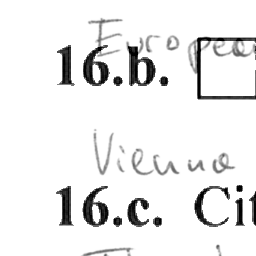 European
16.b.
Vienna
16.c. Cit